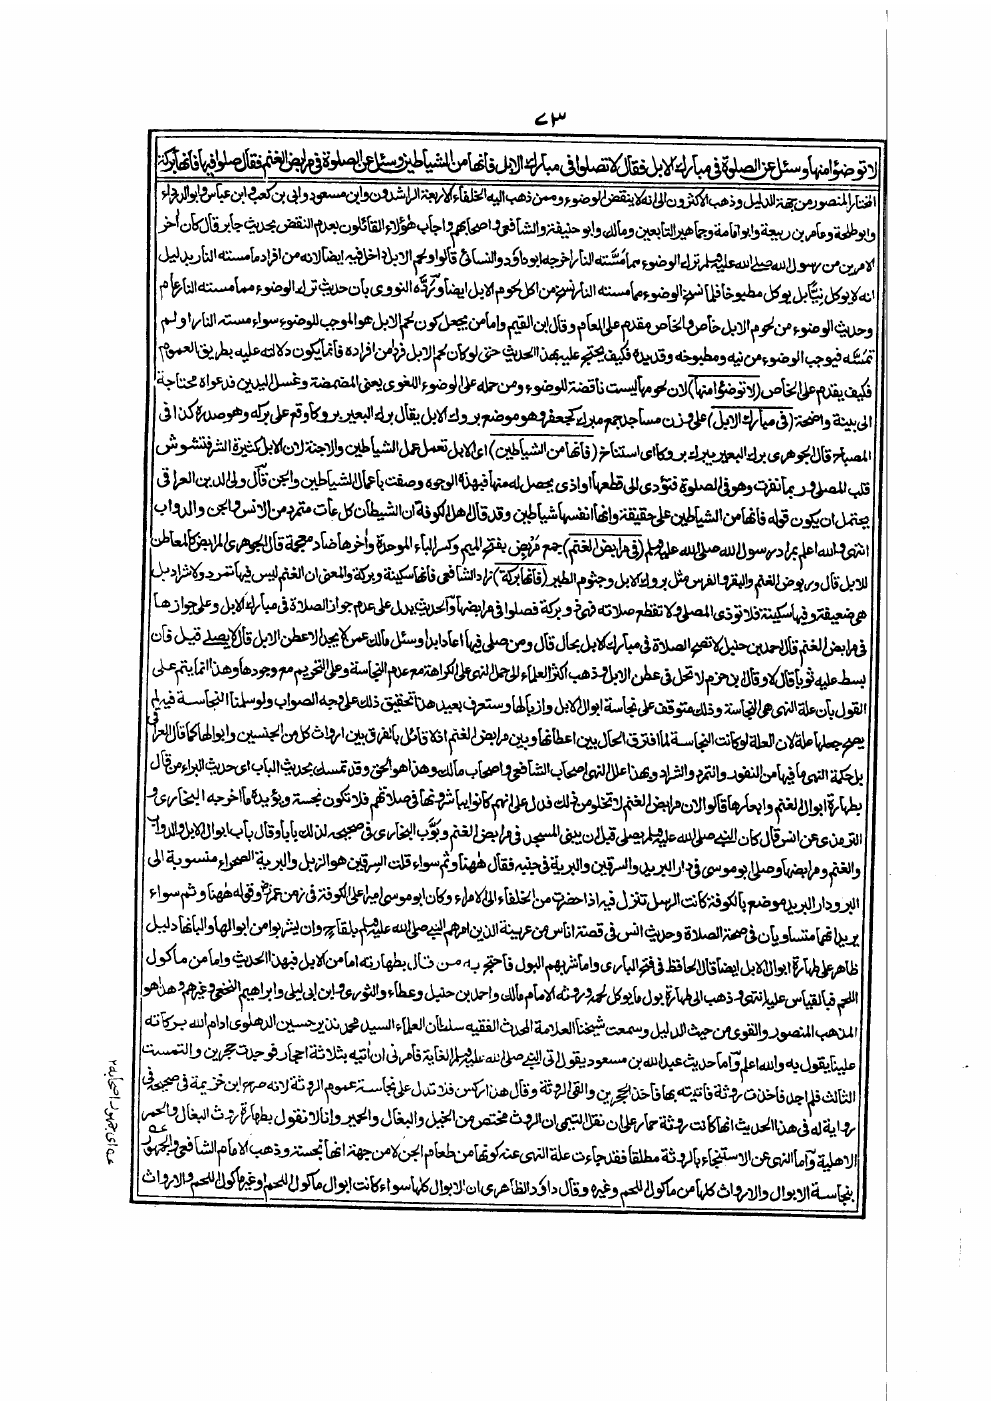 ٧٣
لا توضؤا منها وسئل عن الصلوة فى مبارك الابل فقال لا تصلوا فى مبارك الابل فانها من الشياطين وسئل عن الصلوة فى مرابض الغنم فقال صلوا فيها فانها بركة
المختار المنصور من جهة الدليل وذهب الاكثرون الى انه لا ينقض الوضوء وممن ذهب اليه الخلفاء الاربعة الراشدون وابن مسعود وابى بن كعب وابن عباس وابو الدرداء
وابو طلحة وعامر بن ربيعة وابو امامة وجماهير التابعين ومالك وابو حنيفة والشافعى واصحابهم واجاب هؤلاء القائلون بعدم النقض بحديث جابر قال كان أخر
الامرين من رسول الله صلى الله عليه وسلم ترك الوضوء مما مسّته النار اخرجه ابو داود والنسائى قالوا ولحم الابل داخل فيه ايضا لانه من افراد ما مسته النار بدليل
انه لا يوكل نيّا بل يوكل مطبوخا فلما نسخ الوضوء مما مسته النار نسخ من اكل لحوم الابل ايضا وردّه النووى بان حديث ترك الوضوء مما مسته النار عام
وحديث الوضوء من لحوم الابل خاص والخاص مقدم على العام وقال ابن القيم واما من يجعل كون لحم الابل هو الموجب للوضوء سواء مسته النار او لم
تمسّه فيوجب الوضوء من نيه ومطبوخه وقديده فكيف يحتج عليه بهذا الحديث حتى لو كان لحم الابل فردا من افراده فانما يكون دلالته عليه بطريق العموم
فكيف يقدم على الخاص (لا توضؤا منها) لان لحومها ليست ناقضة للوضوء ومن حمله على الوضوء اللغوى يعنى المضمضة وغسل اليدين فدعواه محتاجة
الى بينة واضحة (فى مبارك الابل) على وزن مساجد جمع مبرك كجعفر وهو موضع بروك الابل يقال برك البعير بروكا وقع على بركه وهو صدره كذا فى
المصباح قال الجوهرى برك البعير يبرك بروكا اى استناخ (فانها من الشياطين) اى الابل تعمل عمل الشياطين والاجنة لان الابل كثيرة الشر فتشوش
قلب المصلى وربما نفرت وهو فى الصلوة فتؤدى الى قطعها او اذى يحصل له منها فبهذه الوجوه وصفت باعمال الشياطين والجن قال ولى الدين العراقى
يحتمل ان يكون قوله فانها من الشياطين على حقيقته وانها انفسها شياطين وقد قال اهل الكوفة ان الشيطان كل عات متمرد من الانس والجن والدواب
انتهى والله اعلم بمراد رسول الله صلى الله عليه وسلم (فى مرابض الغنم) جمع مربض بفتح الميم وكسر الباء الموحدة وأخرها ضاد معجمة قال الجوهرى المرابض كالمعاطن
للابل قال وربوض الغنم والبقر والفرس مثل بروك الابل وجثوم الطير (فانها بركة) زاد الشافعى فانها سكينة وبركة والمعنى ان الغنم ليس فيها تمرد ولا شراد بل
هى ضعيفة وفيها سكينة فلا تؤذى المصلى ولا تقطع صلاته فهى ذو بركة فصلوا فى مرابضها والحديث يدل على عدم جواز الصلاة فى مبارك الابل وعلى جوازها
فى مرابض الغنم قال احمد بن حنبل لا تصح الصلاة فى مبارك الابل بحال قال ومن صلى فيها اعاد ابدا وسئل مالك عمن لا يجد الا عطن الابل قال لا يصلى قيل فان
بسط عليه ثوبا قال لا وقال ابن حزم لا تحل فى عطن الابل وذهب اكثر العلماء الى حمل النهى على الكراهة مع عدم النجاسة وعلى التحريم مع وجودها وهذا انما يتم على
القول بان علة النهى هى النجاسة وذلك متوقف على نجاسة ابوال الابل وازبالها وستعرف بعيد هذا تحقيق ذلك على وجه الصواب ولو سلمنا النجاسة فيه لم
يصح جعلها علة لان العلة لو كانت النجاسة لما افترق الحال بين اعطانها وبين مرابض الغنم اذ لا قائل بالفرق بين ارواث كل من الجنسين وابوالها كما قال العراقى
بل حكمة النهى ما فيها من النفور والتمرد والشراد وبهذا علل النهى اصحاب الشافعى واصحاب مالك وهذا هو الحق وقد تمسك بحديث الباب اى حديث البراء من قال
بطهارة ابوال الغنم وابعارها قالوا لان مرابض الغنم لا تخلو من ذلك فدل على انهم كانوا يباشرونها فى صلاتهم فلا تكون نجسة ويؤيده ما اخرجه البخارى و
الترمذى عن انس قال كان النبى صلى الله عليه وسلم يصلى قبل ان يبنى المسجد فى مرابض الغنم وبوّب البخارى فى صحيحه لذلك بابا وقال باب ابوال الابل والدواب
والغنم ومرابضها وصلى ابو موسى فى دار البريد والسرقين والبرية فى جنبه فقال ههنا وثم سواء قلت السرقين هو الزبل والبرية الصحراء منسوبة الى
البر ودار البريد موضع بالكوفة كانت الرسل تنزل فيه اذا حضرت من الخلفاء الى الامراء وكان ابو موسى اميرا على الكوفة فى زمن عمر وقوله ههنا وثم سواء
يريد انهما متساويان فى صحة الصلاة وحديث انس فى قصة اناس من عرينة الذين امرهم النبى صلى الله عليه وسلم بلقاح وان يشربوا من ابوالها والبانها دليل
ظاهر على طهارة ابوال الابل ايضا قال الحافظ فى فتح البارى واما شربهم البول فاحتج به من قال بطهارته اما من الابل فبهذا الحديث واما من ماكول
اللحم فبالقياس عليه انتهى وذهب الى طهارة بول ما يوكل لحمه وروثه الامام مالك واحمد بن حنبل وعطاء والثورى وابن ابى ليلى وابراهيم النخعى وغيرهم وهذا هو
المذهب المنصور والقوى من حيث الدليل وسمعت شيخنا العلامة المحدث الفقيه سلطان العلماء السيد محمد نذير حسين الدهلوى ادام الله بركاته
علينا يقول به والله اعلم وأما حديث عبد الله بن مسعود يقول اتى النبى صلى الله عليه وسلم الغايط فامرنى ان اٰتيه بثلاثة احجار فوجدت حجرين والتمست
الثالث فلم اجد فاخذت روثة فاتيته بها فاخذ الحجرين والقى الروثة وقال هذا ركس فلا تدل على نجاسة عموم الروثة لانه صرح ابن خزيمة فى صحيحه فى
رواية له فى هذا الحديث انها كانت روثة حمار على ان نقل التيمى ان الروث مختص من الخيل والبغال والحمير وانا لا نقول بطهارة روث البغال والحمر
الاهلية واما النهى عن الاستنجاء بالروثة مطلقا فقد جاءت علة النهى عنه كونها من طعام الجن لا من جهة انها نجسة وذهب الامام الشافعى والجمهور
بنجاسة الابوال والارواث كلها من ماكول اللحم وغيره وقال داود الظاهرى ان الابوال كلها سواء كانت ابوال ماكول اللحم وغير ماكول اللحم والارواث